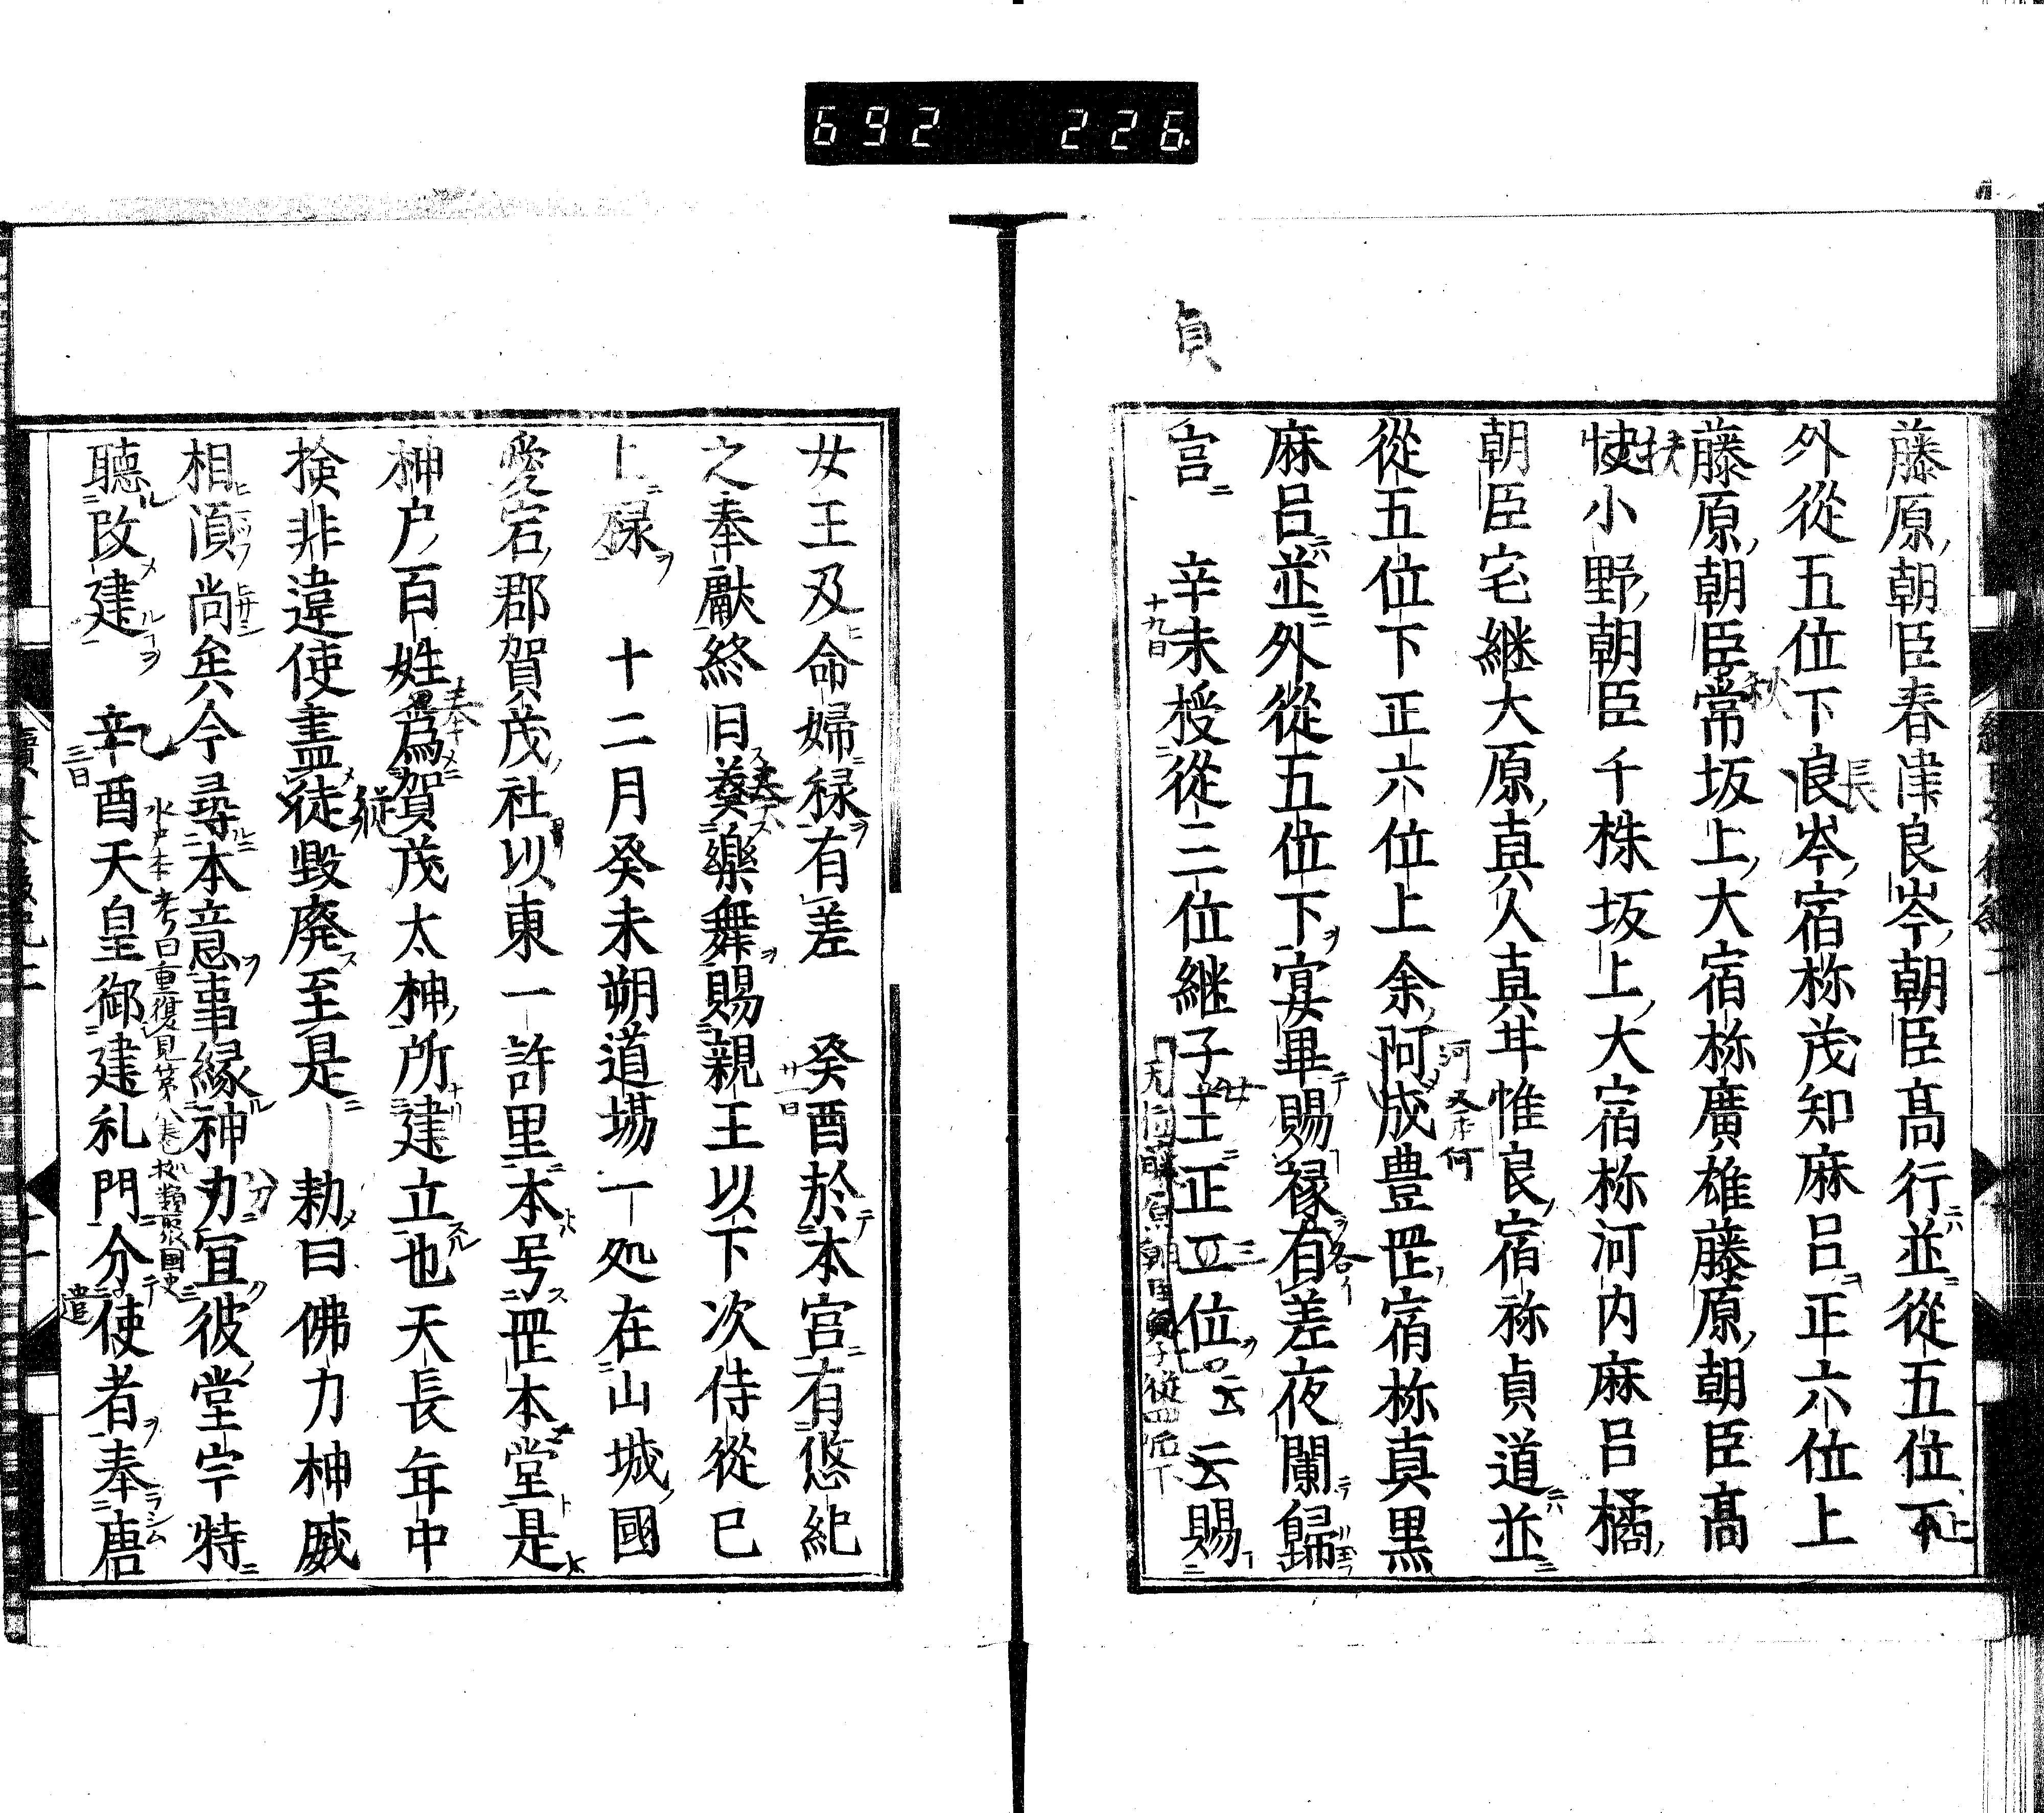 692 226
貞
藤原朝臣春津良岑朝臣髙行並從五位下
外從五位下良岑宿祢茂知麻呂正六位上
藤原朝臣常坂上大宿祢廣雄藤原朝臣髙
小野朝臣千株坂上大宿祢河内麻呂橘
朝臣宅継大原真人真𠦑惟良宿祢貞道並
從五位下正六位上余阿成豊罡宿祢真黒
麻呂並外從五位下宴畢賜禄有差夜闌歸
宮 辛未授從三位継子王正五位云云賜
十九日
女王及命婦禄有差 癸酉於本宮有悠紀
廿一日
之奉獻終日奏樂舞賜親王以下次侍從已
上禄 十二月癸未朔道場一処在山城國
愛宕郡賀茂社以東一許里本号罡本堂是
神户百姓爲賀茂太神所建立也天長年中
撿非違使盡徒毀廃至是 勅曰佛力神威
相湏尚矣今尋本意事縁神力宜彼堂宇特
聽改建 辛酉天皇御建礼門分使者奉唐
三日
水戸本考曰重復見第八巻拠類聚國史
遣